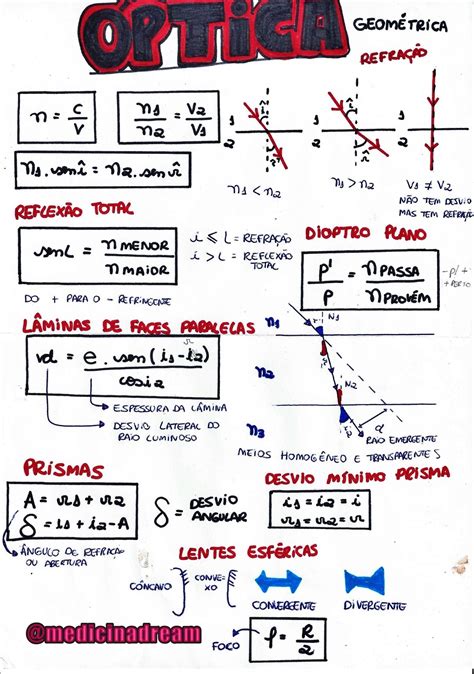 ÓPTICA GEOMÉTRICA
REFRAÇÃO
n = c/v
n1/n2 = V2/V1
n1 . sen î = n2 . sen r̂
î
r̂
1
2
n1 < n2
î
r̂
1
2
n1 > n2
1
2
V1 ≠ V2
NÃO TEM DESVIO
MAS TEM REFRAÇÃO
REFLEXÃO TOTAL
sen L = n MENOR / n MAIOR
i ≤ L = REFRAÇÃO
i > L = REFLEXÃO
TOTAL
DO + PARA O - REFRINGENTE
DIOPTRO PLANO
P'/P = n PASSA / n PROVÉM
-p/+
+ PERTO
LÂMINAS DE FACES PARALELAS
d = e . sen (i1 - i2) / cos i2
ESPESSURA DA LÂMINA
DESVIO LATERAL DO
RAIO LUMINOSO
n1
N1
n2
N2
n3
d
RAIO EMERGENTE
MEIOS HOMOGÊNEO E TRANSPARENTES
PRISMAS
A = r1 + r2
δ = i1 + i2 - A
δ = DESVIO
ANGULAR
ÂNGULO DE REFRAÇÃO
OU ABERTURA
DESVIO MÍNIMO PRISMA
i1 = i2 = i
r1 = r2 = r
LENTES ESFÉRICAS
CÔNCAVO
CONVE-
XO
CONVERGENTE
DIVERGENTE
@medicinadream
FOCO
f = R/2